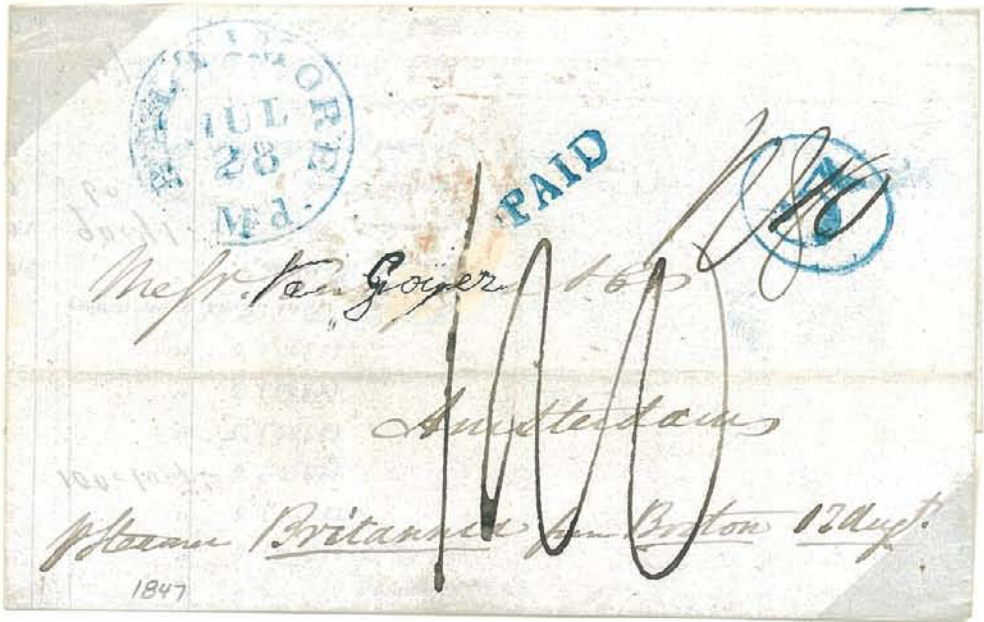 BALTIMORE
JUL
28
Md.
PAID
10
Messr. Van Goijer & Co
Amsterdam
p Steamer Britannia from Boston 1 Augt.
1847